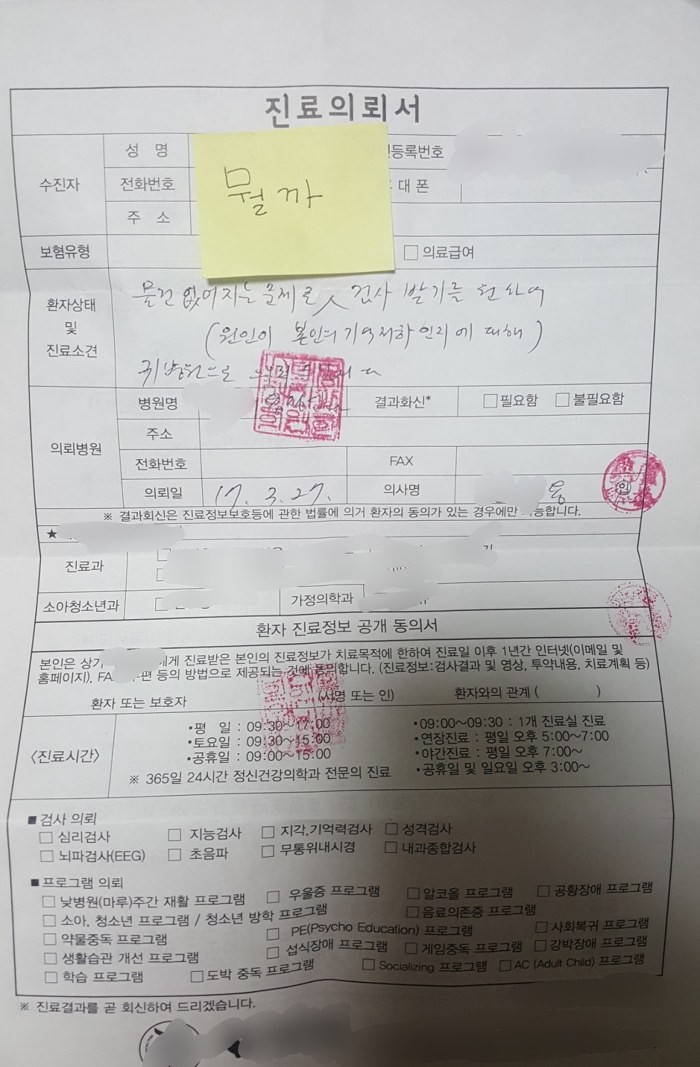 진료의뢰서
수진자
성 명
등록번호
전화번호
대 폰
주 소
뭘까
보험유형
□ 의료급여
환자상태 및 진료소견
물건 없어지는 문제로 검사 받기를 원하여
(원인이 본인의 기억저하인지에 대해)
귀병원으로
의뢰병원
병원명
결과회신*
□ 필요함 □ 불필요함
주소
전화번호
FAX
의뢰일
17. 3. 27.
의사명
용
인
※ 결과회신은 진료정보보호등에 관한 법률에 의거 환자의 동의가 있는 경우에만 가능합니다.
★
진료과
소아청소년과
가정의학과
환자 진료정보 공개 동의서
본인은 상기 에게 진료받은 본인의 진료정보가 치료목적에 한하여 진료일 이후 1년간 인터넷(이메일 및
홈페이지), FA 편 등의 방법으로 제공되는 것에 동의합니다. (진료정보:검사결과 및 영상, 투약내용, 치료계획 등)
환자 또는 보호자 (서명 또는 인) 환자와의 관계 ( )
〈진료시간〉
•평 일 : 09:30~17:00
•토요일 : 09:30~15:00
•공휴일 : 09:00~15:00
•09:00~09:30 : 1개 진료실 진료
•연장진료 : 평일 오후 5:00~7:00
•야간진료 : 평일 오후 7:00~
•공휴일 및 일요일 오후 3:00~
※ 365일 24시간 정신건강의학과 전문의 진료
■ 검사 의뢰
□ 심리검사 □ 지능검사 □ 지각,기억력검사 □ 성격검사
□ 뇌파검사(EEG) □ 초음파 □ 무통위내시경 □ 내과종합검사
■ 프로그램 의뢰
□ 낮병원(마루)주간 재활 프로그램 □ 우울증 프로그램 □ 알코올 프로그램 □ 공황장애 프로그램
□ 소아, 청소년 프로그램 / 청소년 방학 프로그램 □ 음료의존증 프로그램
□ 약물중독 프로그램 □ PE(Psycho Education) 프로그램 □ 사회복귀 프로그램
□ 생활습관 개선 프로그램 □ 섭식장애 프로그램 □ 게임중독 프로그램 □ 강박장애 프로그램
□ 학습 프로그램 □ 도박 중독 프로그램 □ Socializing 프로그램 □ AC (Adult Child) 프로그램
※ 진료결과를 곧 회신하여 드리겠습니다.